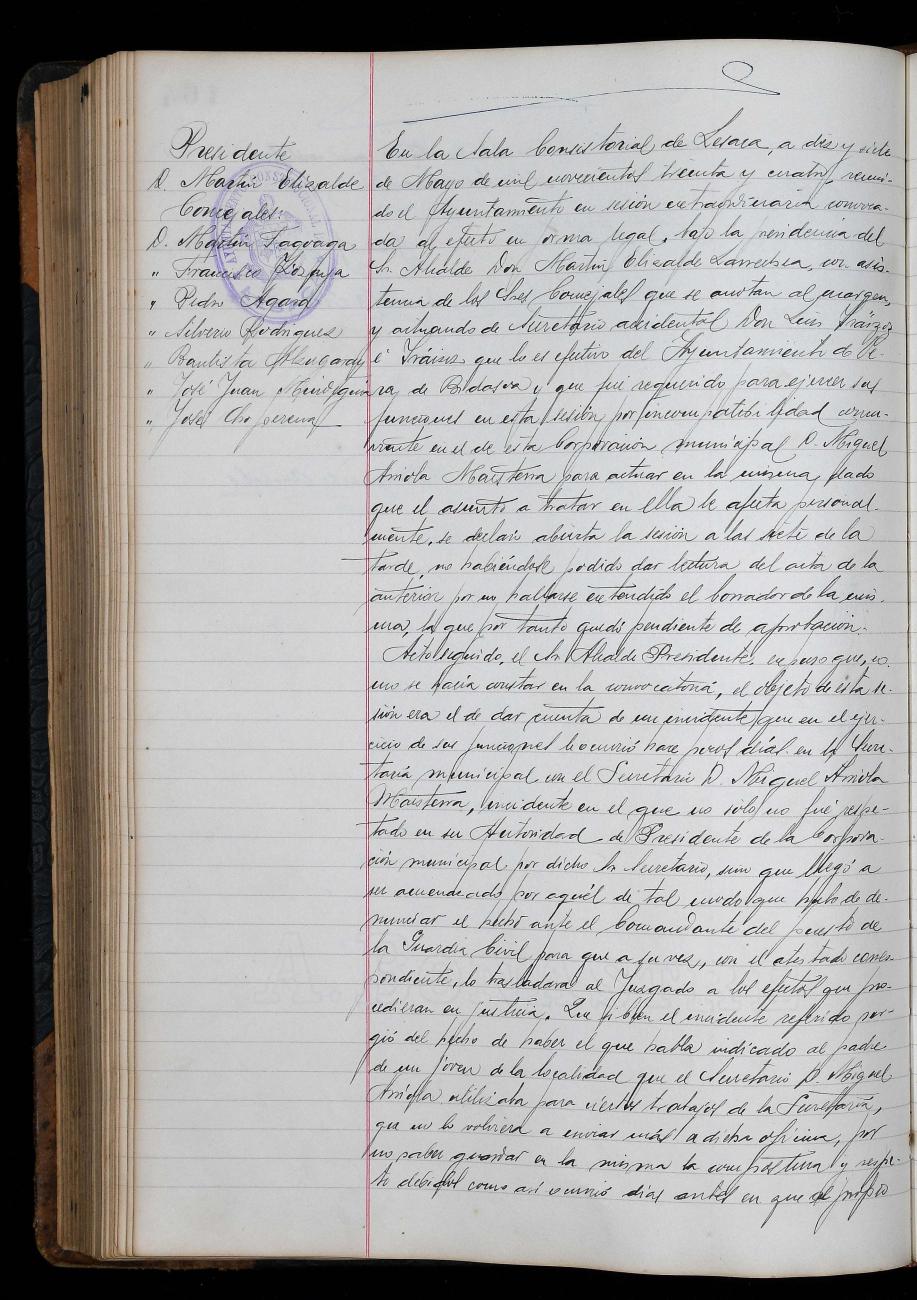 Presidente
D. Martín Elizalde
Concejales:
D. Martín Tagoaga
" Francisco
" Pedro Agara
" Silverio Rodriguez
" Bautista
" José Juan Mendiguia
" José
En la Sala Consistorial de Lesaca, a diez y siete
de Mayo de mil novecientos treinta y cuatro, reuni-
do el Ayuntamiento en sesión extraordinaria convoca-
da al efecto en forma legal, bajo la presidencia del
Sr. Alcalde Don Martín Elizalde Larrechea, con asis-
tencia de los Sres Concejales que se anotan al margen,
y actuando de Secretario accidental Don Luis Iráizoz
é Iráizoz que lo es efectivo del Ayuntamiento de Ve-
ra de Bidasoa y que fué requerido para ejercer sus
funciones en esta sesión por incompatibilidad concu-
rrente en el de esta Corporación municipal D. Miguel
Arriola Maisterra para actuar en la misma, dado
que el asunto a tratar en ella le afecta personal-
mente, se declaró abierta la sesión a las siete de la
tarde, no habiéndose podido dar lectura del acta de la
anterior por no hallarse extendido el borrador de la mis-
ma, la que por tanto quedó pendiente de aprobación.
Acto seguido, el Sr. Alcalde Presidente, expuso que, co-
mo se hacía constar en la convocatoria, el objeto de esta se-
sión era el de dar cuenta de un incidente que en el ejer-
cicio de sus funciones le ocurrió hace pocos días en la Secre-
taría municipal con el Secretario D. Miguel Arriola
Maisterra, incidente en el que no sólo no fué respe-
tado en su Autoridad de Presidente de la Corpora-
ción municipal por dicho Sr. Secretario, sino que llegó a
ser amenazado por aquél de tal modo que hubo de de-
nunciar el hecho ante el Comandante del puesto de
la Guardia Civil para que a su vez, con el atestado corres-
pondiente, lo trasladara al Juzgado a los efectos que pro-
cedieran en justicia. Que si bien el incidente referido sur-
gió del hecho de haber el que habla indicado al padre
de un jóven de la localidad que el Secretario D. Miguel
Arriola utilizaba para ciertos trabajos de la Secretaría,
que no lo volviera a enviar más a dicha oficina, por
no saber guardar en la misma la compostura y respe-
to debidos como así ocurrió días antes en que el propio